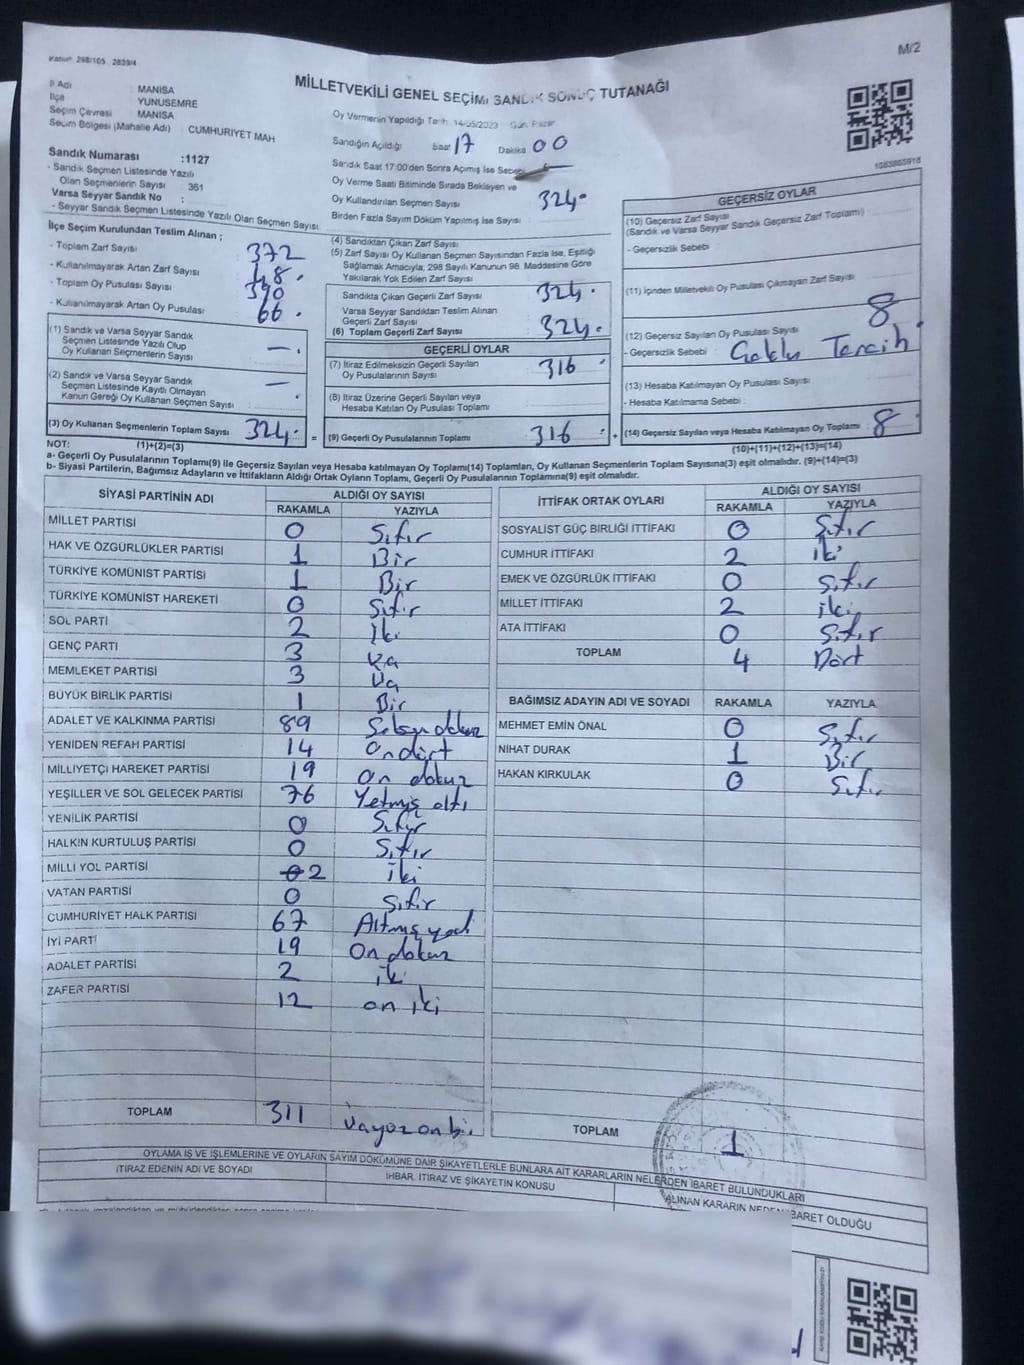 Kanun: 298/105, 2839/4
M/2
MİLLETVEKİLİ GENEL SEÇİMİ SANDIK SONUÇ TUTANAĞI
İl Adı : MANİSA
İlçe : YUNUSEMRE
Seçim Çevresi : MANİSA
Seçim Bölgesi (Mahalle Adı) : CUMHURİYET MAH
Oy Vermenin Yapıldığı Tarih: 14/05/2023 Gün: Pazar
Sandığın Açıldığı Saat 17 Dakika 00
Sandık Saat 17:00'den Sonra Açılmış İse Sebebi
Oy Verme Saati Bitiminde Sırada Bekleyen ve
Oy Kullandırılan Seçmen Sayısı 324
Birden Fazla Sayım Döküm Yapılmış İse Sayısı
1083805918
Sandık Numarası :1127
- Sandık Seçmen Listesinde Yazılı
Olan Seçmenlerin Sayısı : 361
Varsa Seyyar Sandık No :
- Seyyar Sandık Seçmen Listesinde Yazılı Olan Seçmen Sayısı
İlçe Seçim Kurulundan Teslim Alınan ;
- Toplam Zarf Sayısı : 372
- Kullanılmayarak Artan Zarf Sayısı : 48
- Toplam Oy Pusulası Sayısı : 390
- Kullanılmayarak Artan Oy Pusulası : 66
(1) Sandık ve Varsa Seyyar Sandık
Seçmen Listesinde Yazılı Olup
Oy Kullanan Seçmenlerin Sayısı : —
(2) Sandık ve Varsa Seyyar Sandık
Seçmen Listesinde Kayıtlı Olmayan
Kanun Gereği Oy Kullanan Seçmen Sayısı : —
(3) Oy Kullanan Seçmenlerin Toplam Sayısı 324
(4) Sandıktan Çıkan Zarf Sayısı
(5) Zarf Sayısı Oy Kullanan Seçmen Sayısından Fazla İse, Eşitliği
Sağlamak Amacıyla; 298 Sayılı Kanunun 98. Maddesine Göre
Yakılarak Yok Edilen Zarf Sayısı
Sandıkta Çıkan Geçerli Zarf Sayısı 324
Varsa Seyyar Sandıktan Teslim Alınan
Geçerli Zarf Sayısı
(6) Toplam Geçerli Zarf Sayısı 324
GEÇERLİ OYLAR
(7) İtiraz Edilmeksizin Geçerli Sayılan
Oy Pusulalarının Sayısı 316
(8) İtiraz Üzerine Geçerli Sayılan veya
Hesaba Katılan Oy Pusulası Toplamı
= (9) Geçerli Oy Pusulalarının Toplamı 316
GEÇERSİZ OYLAR
(10) Geçersiz Zarf Sayısı
(Sandık ve Varsa Seyyar Sandık Geçersiz Zarf Toplamı)
- Geçersizlik Sebebi
(11) İçinden Milletvekili Oy Pusulası Çıkmayan Zarf Sayısı
(12) Geçersiz Sayılan Oy Pusulası Sayısı 8
- Geçersizlik Sebebi Çoklu Tercih
(13) Hesaba Katılmayan Oy Pusulası Sayısı
- Hesaba Katılmama Sebebi :
+ (14) Geçersiz Sayılan veya Hesaba Katılmayan Oy Toplamı 8
NOT: (1)+(2)=(3)
(10)+(11)+(12)+(13)=(14)
a- Geçerli Oy Pusulalarının Toplamı(9) ile Geçersiz Sayılan veya Hesaba katılmayan Oy Toplamı(14) Toplamları, Oy Kullanan Seçmenlerin Toplam Sayısına(3) eşit olmalıdır. (9)+(14)=(3)
b- Siyasi Partilerin, Bağımsız Adayların ve İttifakların Aldığı Ortak Oyların Toplamı, Geçerli Oy Pusulalarının Toplamına(9) eşit olmalıdır.
SİYASİ PARTİNİN ADI ALDIĞI OY SAYISI
RAKAMLA YAZIYLA
MİLLET PARTİSİ 0 Sıfır
HAK VE ÖZGÜRLÜKLER PARTİSİ 1 Bir
TÜRKİYE KOMÜNİST PARTİSİ 1 Bir
TÜRKİYE KOMÜNİST HAREKETİ 0 Sıfır
SOL PARTİ 2 İki
GENÇ PARTİ 3 Üç
MEMLEKET PARTİSİ 3 Üç
BÜYÜK BİRLİK PARTİSİ 1 Bir
ADALET VE KALKINMA PARTİSİ 89 Seksen dokuz
YENİDEN REFAH PARTİSİ 14 On dört
MİLLİYETÇİ HAREKET PARTİSİ 19 On dokuz
YEŞİLLER VE SOL GELECEK PARTİSİ 76 Yetmiş altı
YENİLİK PARTİSİ 0 Sıfır
HALKIN KURTULUŞ PARTİSİ 0 Sıfır
MİLLİ YOL PARTİSİ 2 iki
VATAN PARTİSİ 0 Sıfır
CUMHURİYET HALK PARTİSİ 67 Altmış yedi
İYİ PARTİ 19 On dokuz
ADALET PARTİSİ 2 iki
ZAFER PARTİSİ 12 on iki
TOPLAM 311 üçyüz on bir
İTTİFAK ORTAK OYLARI ALDIĞI OY SAYISI
RAKAMLA YAZIYLA
SOSYALİST GÜÇ BİRLİĞİ İTTİFAKI 0 Sıfır
CUMHUR İTTİFAKI 2 iki
EMEK VE ÖZGÜRLÜK İTTİFAKI 0 Sıfır
MİLLET İTTİFAKI 2 iki
ATA İTTİFAKI 0 Sıfır
TOPLAM 4 Dört
BAĞIMSIZ ADAYIN ADI VE SOYADI RAKAMLA YAZIYLA
MEHMET EMİN ÖNAL 0 Sıfır
NİHAT DURAK 1 Bir
HAKAN KIRKULAK 0 Sıfır
TOPLAM 1
OYLAMA İŞ VE İŞLEMLERİNE VE OYLARIN SAYIM DÖKÜMÜNE DAİR ŞİKAYETLERLE BUNLARA AİT KARARLARIN NELERDEN İBARET BULUNDUKLARI
İTİRAZ EDENİN ADI VE SOYADI
İHBAR, İTİRAZ VE ŞİKAYETİN KONUSU
ALINAN KARARIN NEDEN İBARET OLDUĞU